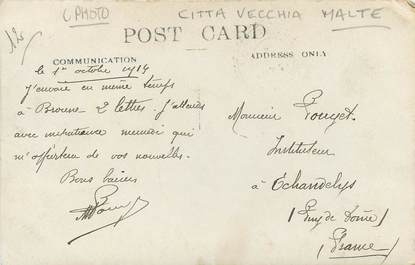 C PHOTO
CITTA VECCHIA MALTE
POST CARD
COMMUNICATION
ADDRESS ONLY
le 1er octobre 1914
J'envoie en même temps
à Broune 2 lettres. J'attends
avec impatience mercredi qui
m'apportera de vos nouvelles.
Bons baisers
Monsieur Pouget
Instituteur
à Echandelys
(Puy de Dôme)
(France)